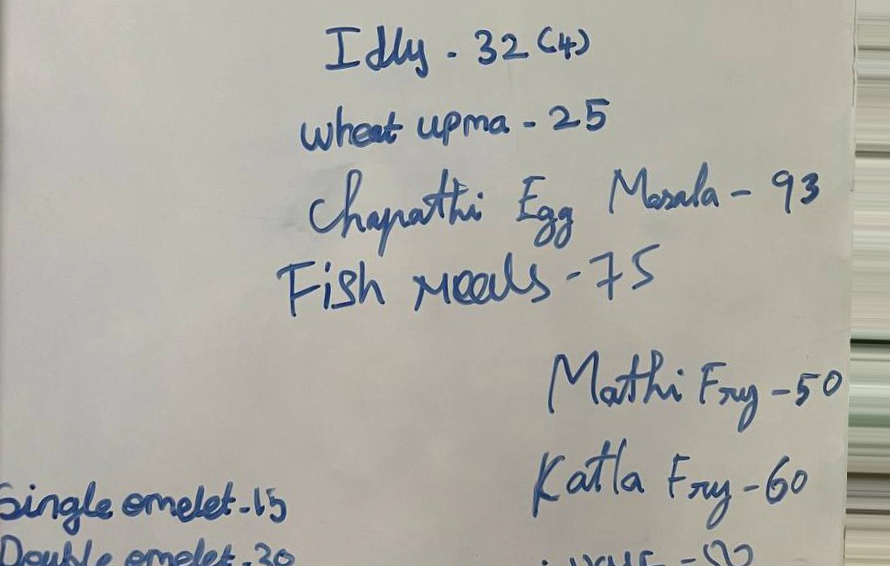 Idly - 32 (4)
wheat upma - 25
Chapathi Egg Masala - 93
Fish meals - 75
Mathi Fry - 50
Katla Fry - 60
Single omelet - 15
Double omelet - 30